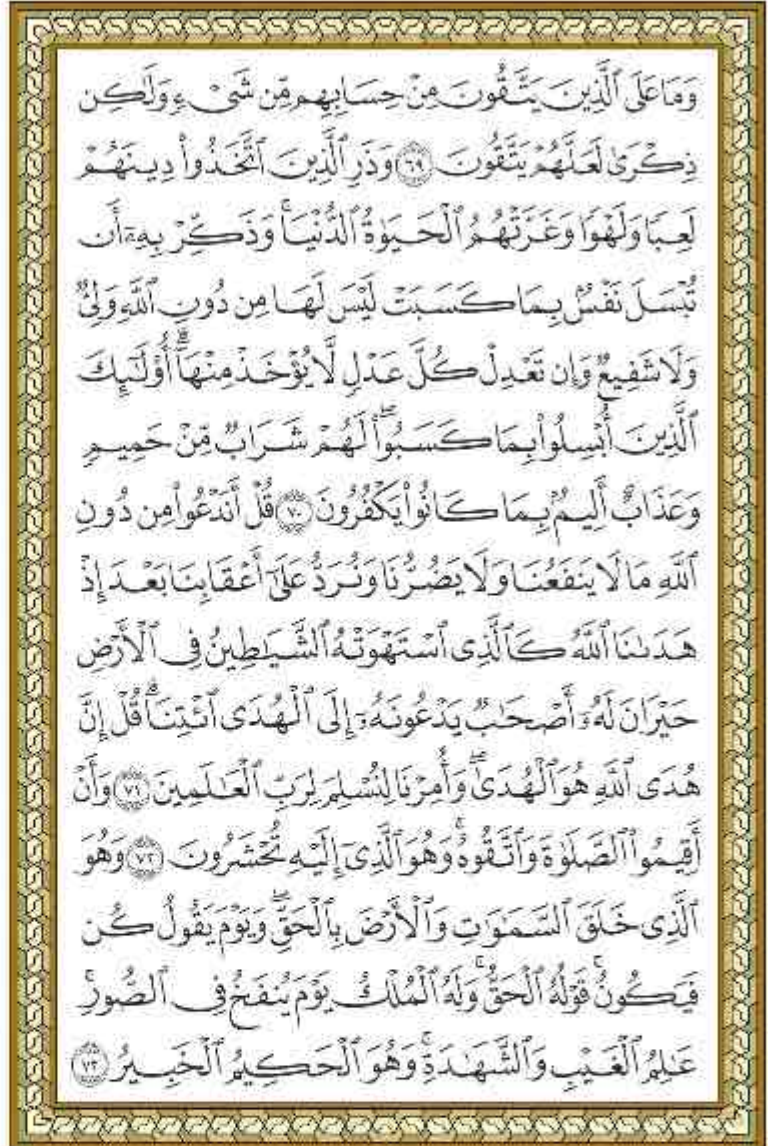 وَمَا عَلَى ٱلَّذِينَ يَتَّقُونَ مِنْ حِسَابِهِم مِّن شَىْءٍ وَلَٰكِن
ذِكْرَىٰ لَعَلَّهُمْ يَتَّقُونَ ٦٩ وَذَرِ ٱلَّذِينَ ٱتَّخَذُوا۟ دِينَهُمْ
لَعِبًا وَلَهْوًا وَغَرَّتْهُمُ ٱلْحَيَوٰةُ ٱلدُّنْيَا ۚ وَذَكِّرْ بِهِۦٓ أَن
تُبْسَلَ نَفْسٌۢ بِمَا كَسَبَتْ لَيْسَ لَهَا مِن دُونِ ٱللَّهِ وَلِىٌّ
وَلَا شَفِيعٌ وَإِن تَعْدِلْ كُلَّ عَدْلٍ لَّا يُؤْخَذْ مِنْهَآ ۗ أُو۟لَٰٓئِكَ
ٱلَّذِينَ أُبْسِلُوا۟ بِمَا كَسَبُوا۟ ۖ لَهُمْ شَرَابٌ مِّنْ حَمِيمٍ
وَعَذَابٌ أَلِيمٌۢ بِمَا كَانُوا۟ يَكْفُرُونَ ٧٠ قُلْ أَنَدْعُوا۟ مِن دُونِ
ٱللَّهِ مَا لَا يَنفَعُنَا وَلَا يَضُرُّنَا وَنُرَدُّ عَلَىٰٓ أَعْقَابِنَا بَعْدَ إِذْ
هَدَىٰنَا ٱللَّهُ كَٱلَّذِى ٱسْتَهْوَتْهُ ٱلشَّيَٰطِينُ فِى ٱلْأَرْضِ
حَيْرَانَ لَهُۥٓ أَصْحَٰبٌ يَدْعُونَهُۥٓ إِلَى ٱلْهُدَى ٱئْتِنَا ۗ قُلْ إِنَّ
هُدَى ٱللَّهِ هُوَ ٱلْهُدَىٰ ۖ وَأُمِرْنَا لِنُسْلِمَ لِرَبِّ ٱلْعَٰلَمِينَ ٧١ وَأَنْ
أَقِيمُوا۟ ٱلصَّلَوٰةَ وَٱتَّقُوهُ ۚ وَهُوَ ٱلَّذِىٓ إِلَيْهِ تُحْشَرُونَ ٧٢ وَهُوَ
ٱلَّذِى خَلَقَ ٱلسَّمَٰوَٰتِ وَٱلْأَرْضَ بِٱلْحَقِّ ۖ وَيَوْمَ يَقُولُ كُن
فَيَكُونُ ۚ قَوْلُهُ ٱلْحَقُّ ۚ وَلَهُ ٱلْمُلْكُ يَوْمَ يُنفَخُ فِى ٱلصُّورِ ۚ
عَٰلِمُ ٱلْغَيْبِ وَٱلشَّهَٰدَةِ ۚ وَهُوَ ٱلْحَكِيمُ ٱلْخَبِيرُ ٧٣